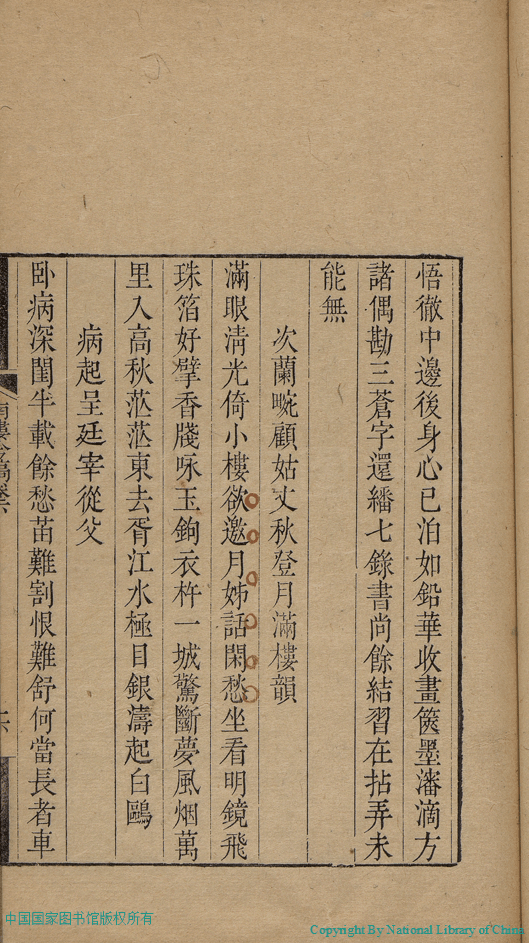 悟徹中邊後身心已泊如鉛華收畫篋墨瀋滴方
諸偶勘三蒼字還繙七錄書尚餘結習在拈弄未
能無
次蘭畹顧姑丈秋登月滿樓韻
滿眼清光倚小樓欲邀月姊話閑愁坐看明鏡飛
珠箔好擘香牋咏玉鉤衣杵一城驚斷夢風烟萬
里入高秋茫茫東去胥江水極目銀濤起白鷗
病起呈廷宰從父
卧病深閨半載餘愁苗難割恨難舒何當長者車
中国国家图书馆版权所有
Copyright By National Library of China